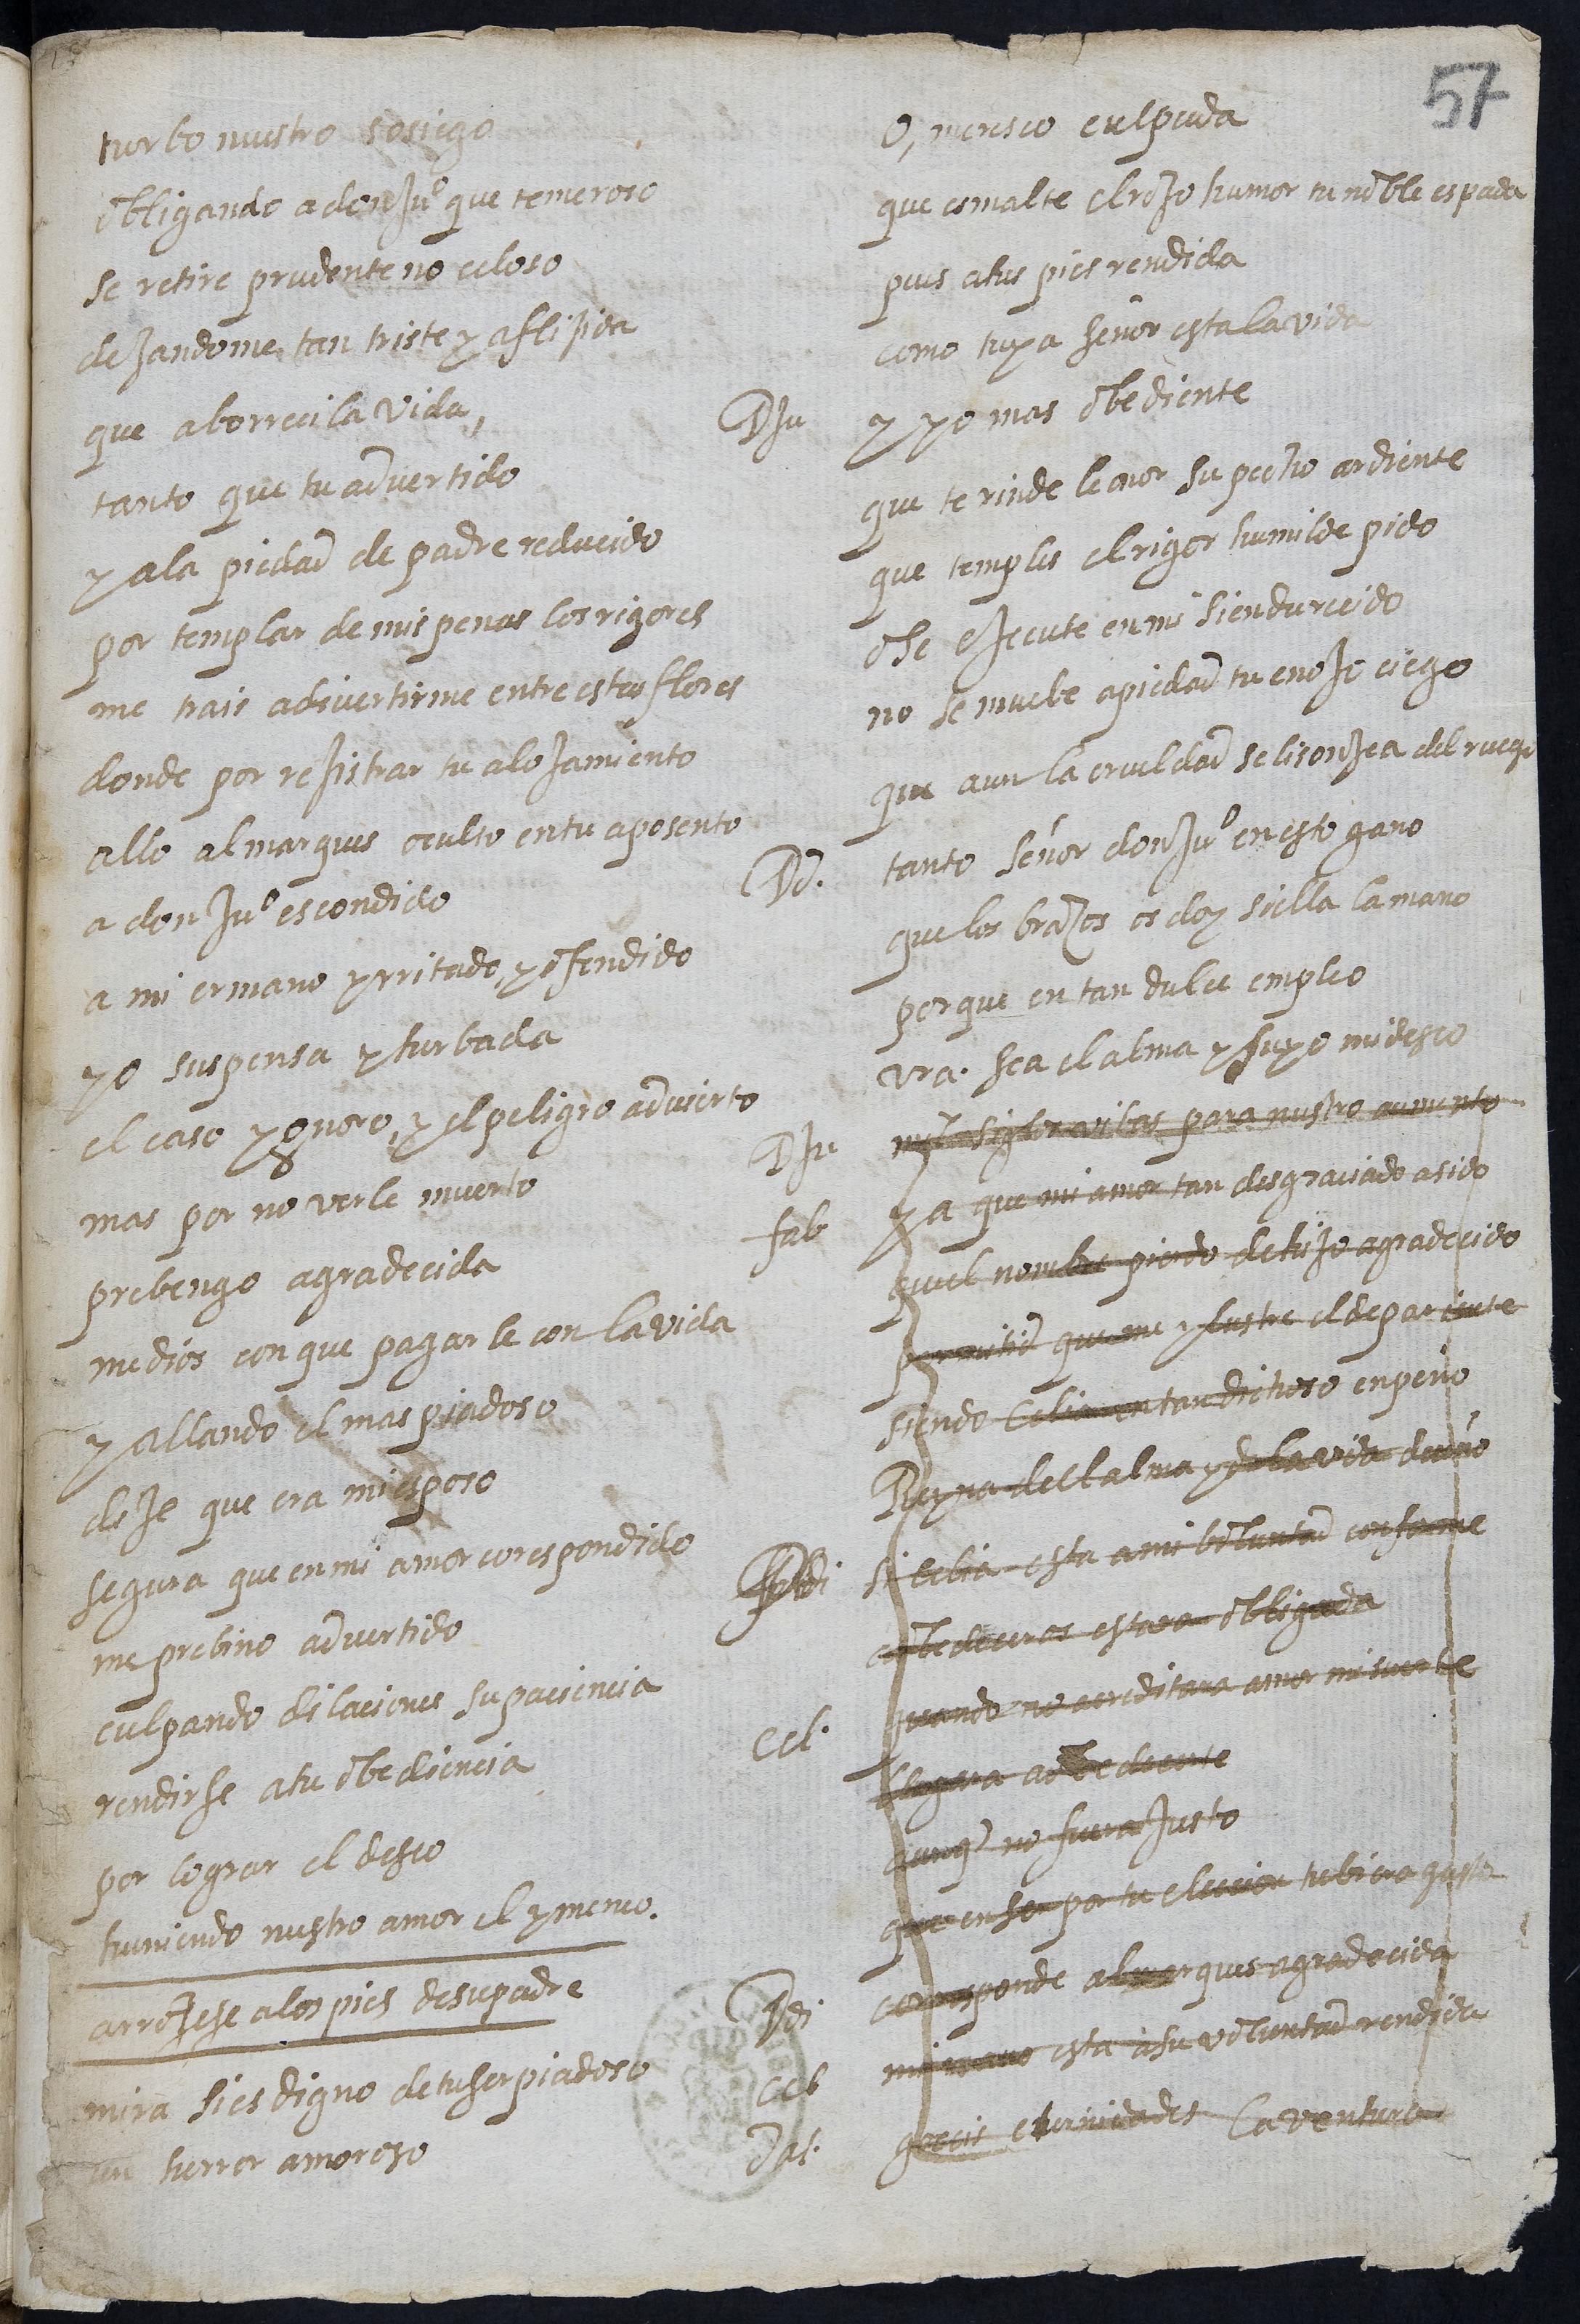 57
turbo nuestro sosiego
obligando a don Juº que temeroso
se retire prudente no celoso
dejandome tan triste y aflijida
que aborreci la vida,
tanto que tu advertido
y ala piedad de padre reducido
por templar de mis penas los rigores
me trais adivertirme entre estas flores
donde por rejistrar tu alojamiento
allo al marques oculto en tu aposento
a don Juº escondido
a mi ermano yrritado, y ofendido
yo suspensa y turbada
el caso ygnoro, y el peligro advierto
mas por no verle muerto
prebengo agradecida
medios con que pagarle con la vida
y allando el mas piadoso
dije que era mi esposo
segura que en mi amor corespondido
me prebino advertido
culpando dilaciones su paciencia
rendirse a tu obediencia
por lograr el deseo
huniendo nuestro amor el ymeneo.
arrojese alos pies de su padre
mira si es digno de tu ser piadoso
un herror amoroso
O, meresco culpada
que esmalte el rojo humor tu noble espada
pues atus pies rendida
como tuya señor esta la vida
DJu y yo mas obediente
que te rinde leonor su pecho ardiente
que temples el rigor humilde pido
o se ejecute en mi si endurecido
no se muebe apiedad tu enojo ciego
que aun la crueldad se lisonjea del ruego
Dd. tanto señor don Juº en esto gano
que los braços os doy si ella la mano
porque en tan dulce empleo
vra. sea el alma y suyo mi deseo
DJu mil siglos vibas para nuestro aumento
fab ya que mi amor tan desgraciado a sido
quel nombre pierdo de hijo agradecido
permitid que me ylustre el de pariente
siendo Celia en tan dichoso enpeño
Reyna del alma y de la vida dueño
Ddi si Celia esta a mi boluntad conforme
obedeceros estara obligada
Cel. quando no acreditara amor mi suerte
llegara a obedecerte
aunq no fuera justo
que en ser por tu eleccion tubiera gusto
Ddi coresponde al marques agradecida
Cel mi mano esta a su voluntad rendida
goceis eternidades la ventura